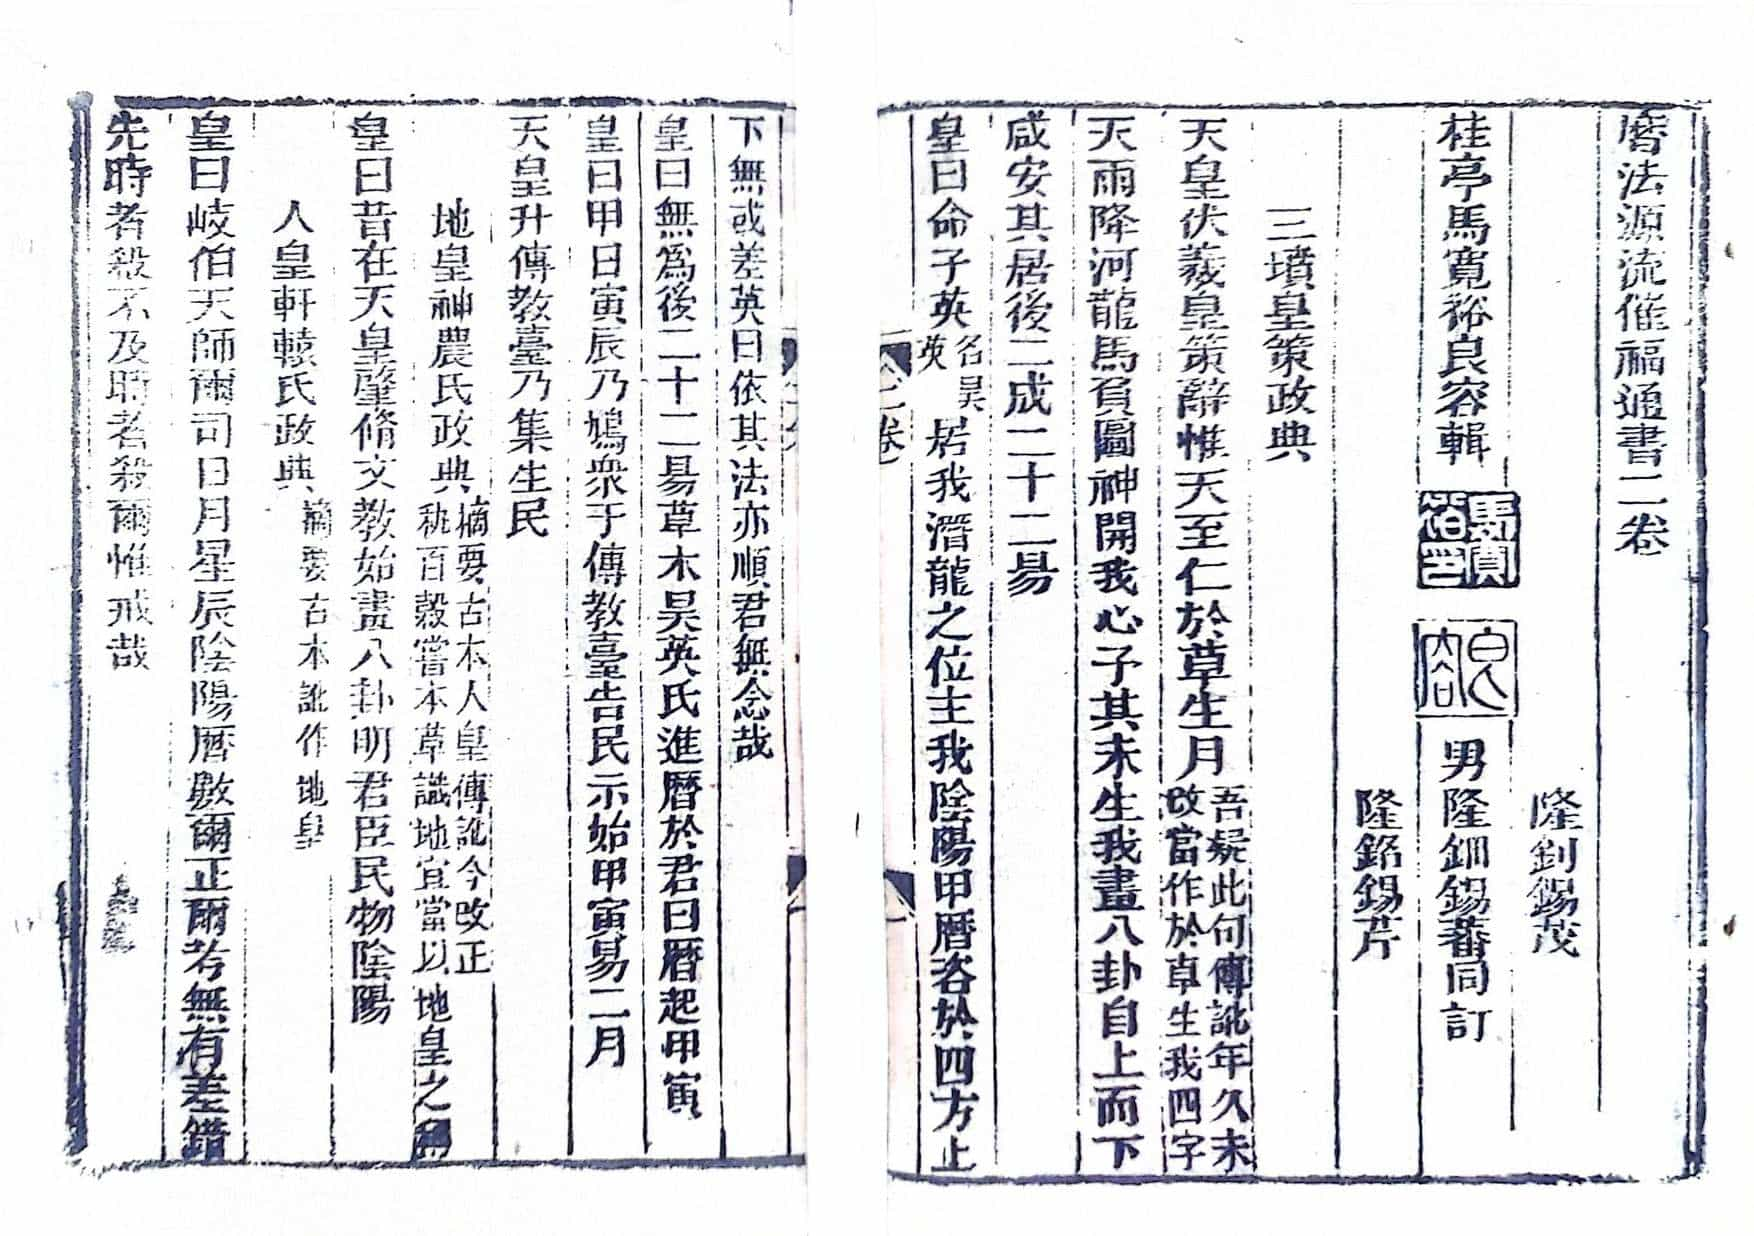 曆法源流催福通書二卷
隆釗錫茂
桂亭馬寬裕良容輯 男隆鈿錫蕃同訂
隆銘錫芹
三墳皇策政典
天皇伏羲皇策辭惟天至仁於草生月吾疑此句傳訛年久未改當作於草生我四字
天雨降河龍馬負圖神開我心子其未生我畫八卦自上而下
咸安其居後二成二十二易
皇曰命子英名昊英居我潛龍之位主我陰陽甲曆咨於四方上
二卷
下無或差英曰依其法亦順君無念哉
皇曰無為後二十二易草木昊英氏進曆於君曰曆起甲寅
皇曰甲日寅辰乃鳩衆于傳教臺告民示始甲寅易二月
天皇升傳教臺乃集生民
地皇神農氏政典摘要古本人皇傳訛今改正秕百穀嘗本草識地宜當以地皇之
皇曰昔在天皇肇脩文教始畫八卦明君臣民物陰陽
人皇軒轅氏政典摘要古本訛作地皇
皇曰岐伯天師爾司日月星辰陰陽曆數爾正爾考無有差錯
先時者殺不及時者殺爾惟戒哉